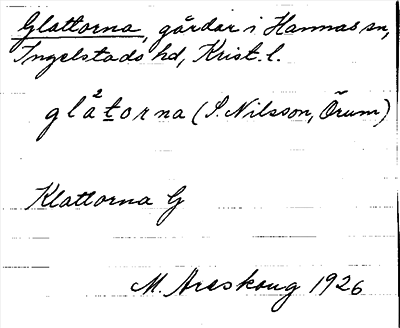 Glattorna, gårdar i Hannas sn,
Ingelstads hd, Krist. l.
glåtorna (S. Nilsson, Örum)
Klattorna G
M. Areskoug 1926